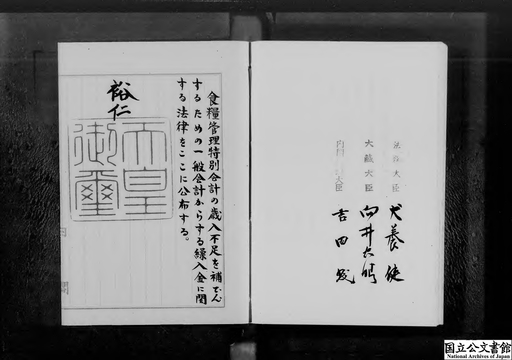 法務大臣 犬養健
大蔵大臣 向井忠晴
大臣 吉田茂
食糧管理特別会計の歳入不足を補てん
するための一般会計からする繰入金に関
する法律をここに公布する。
裕仁
天皇
御璽
国立公文書館
National Archives of Japan